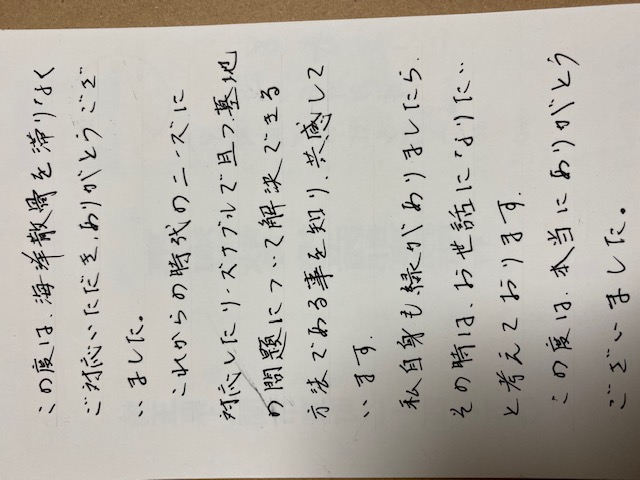 この度は、海洋散骨を滞りなく
ご対応いただき、ありがとうござ
いました。
これからの時代のニーズに
対応したリーズナブルで且つ、墓地
の問題について解決できる
方法である事を知り、共感して
います。
私自身も縁がありましたら、
その時は、お世話になりたい
と考えております。
この度は、本当にありがとう
ございました。